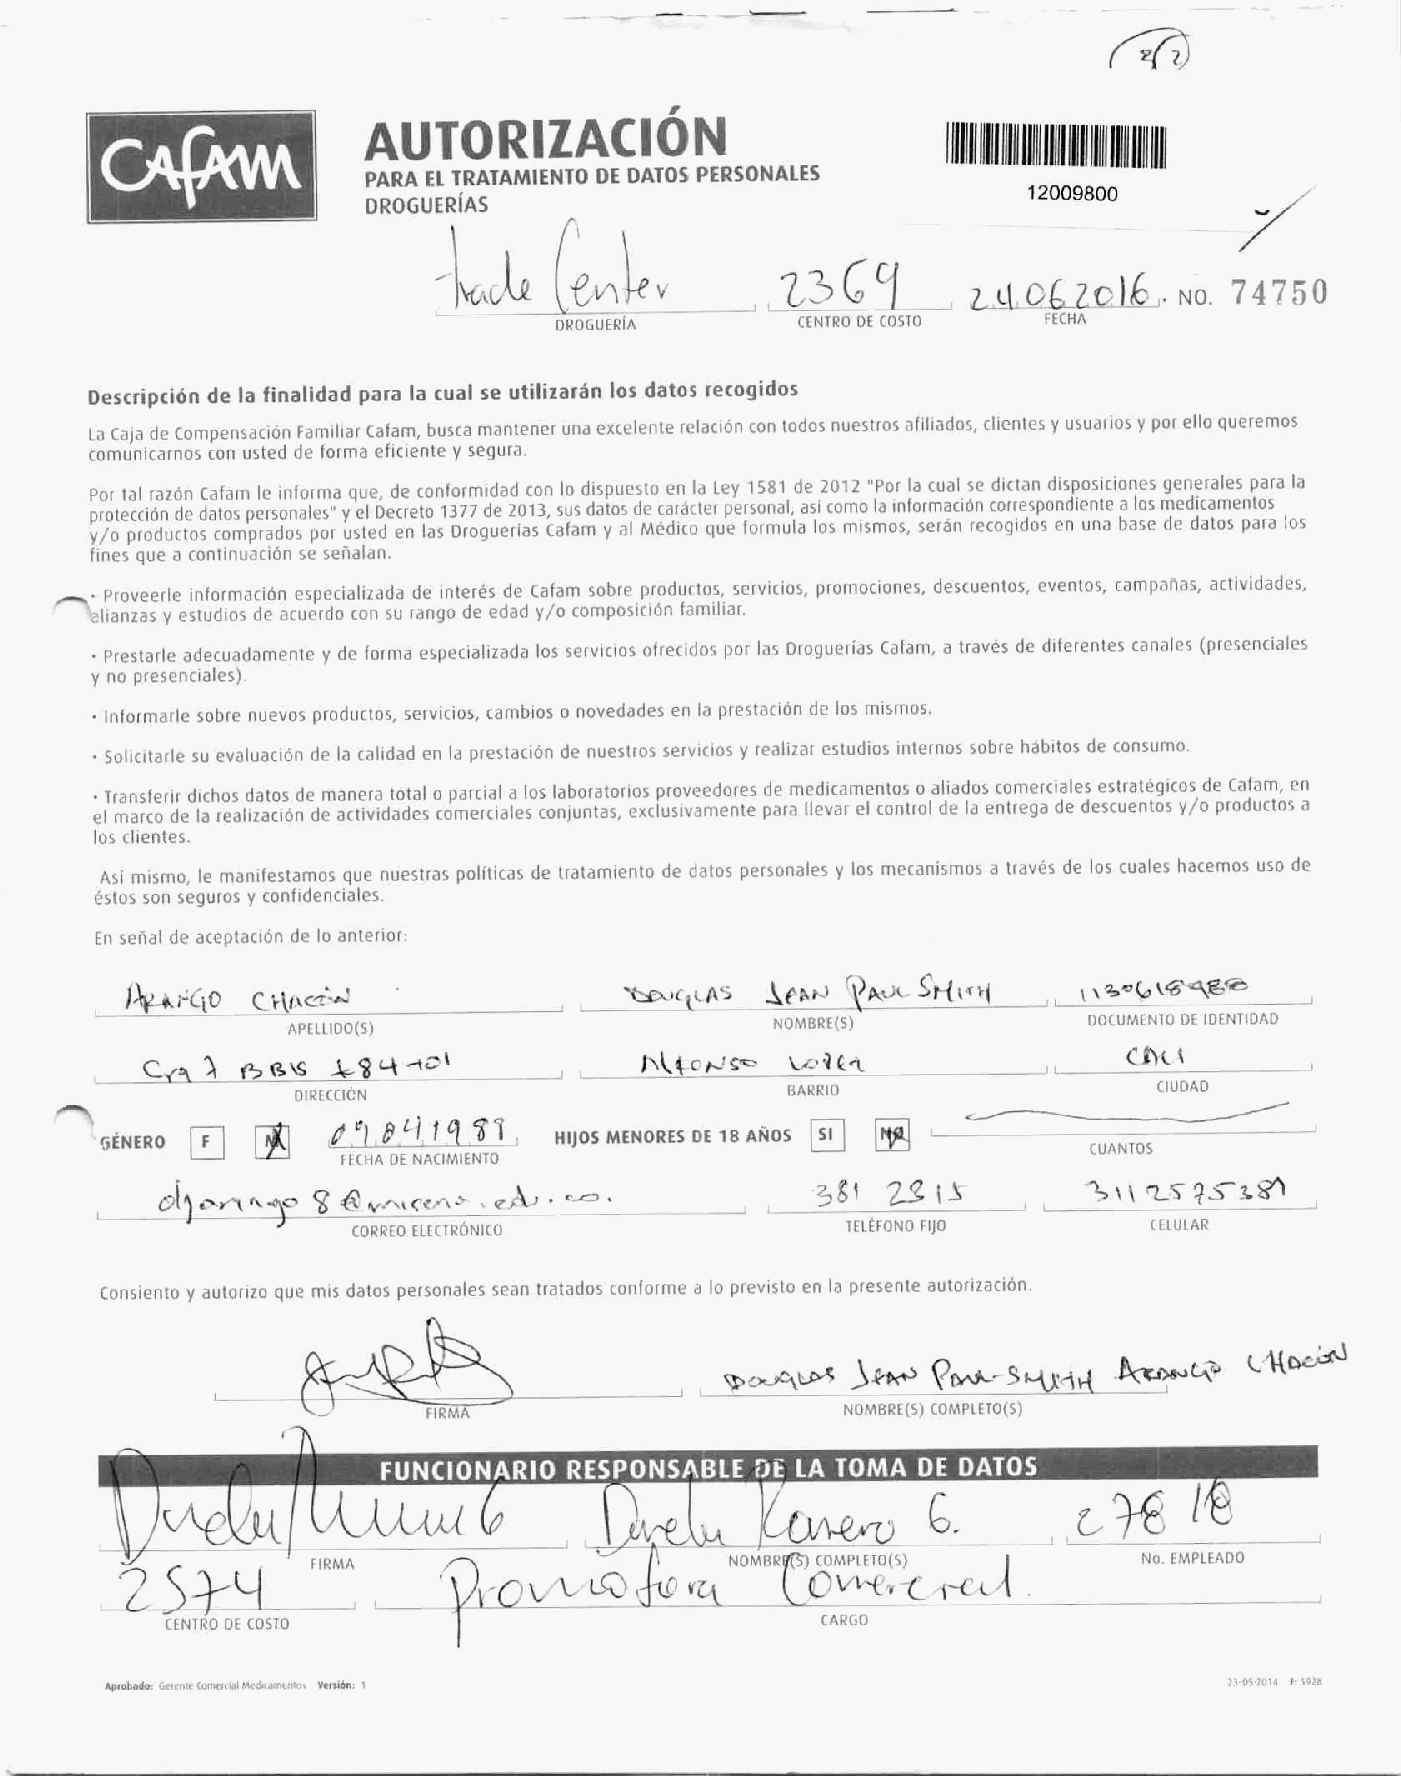 2/2
CAFAM
AUTORIZACIÓN
PARA EL TRATAMIENTO DE DATOS PERSONALES
DROGUERÍAS
12009800
trade Center 2369 24.06.2016. NO. 74750
DROGUERÍA CENTRO DE COSTO FECHA
Descripción de la finalidad para la cual se utilizarán los datos recogidos
La Caja de Compensación Familiar Cafam, busca mantener una excelente relación con todos nuestros afiliados, clientes y usuarios y por ello queremos
comunicarnos con usted de forma eficiente y segura.
Por tal razón Cafam le informa que, de conformidad con lo dispuesto en la Ley 1581 de 2012 "Por la cual se dictan disposiciones generales para la
protección de datos personales" y el Decreto 1377 de 2013, sus datos de carácter personal, así como la información correspondiente a los medicamentos
y/o productos comprados por usted en las Droguerías Cafam y al Médico que formula los mismos, serán recogidos en una base de datos para los
fines que a continuación se señalan.
· Proveerle información especializada de interés de Cafam sobre productos, servicios, promociones, descuentos, eventos, campañas, actividades,
alianzas y estudios de acuerdo con su rango de edad y/o composición familiar.
· Prestarle adecuadamente y de forma especializada los servicios ofrecidos por las Droguerías Cafam, a través de diferentes canales (presenciales
y no presenciales).
· Informarle sobre nuevos productos, servicios, cambios o novedades en la prestación de los mismos.
· Solicitarle su evaluación de la calidad en la prestación de nuestros servicios y realizar estudios internos sobre hábitos de consumo.
· Transferir dichos datos de manera total o parcial a los laboratorios proveedores de medicamentos o aliados comerciales estratégicos de Cafam, en
el marco de la realización de actividades comerciales conjuntas, exclusivamente para llevar el control de la entrega de descuentos y/o productos a
los clientes.
Así mismo, le manifestamos que nuestras políticas de tratamiento de datos personales y los mecanismos a través de los cuales hacemos uso de
éstos son seguros y confidenciales.
En señal de aceptación de lo anterior:
ARANGO CHACÓN DOUGLAS JEAN PAUL SMITH 1130618988
APELLIDO(S) NOMBRE(S) DOCUMENTO DE IDENTIDAD
Cra 7 BBIS #84-101 Alfonso Lopez CALI
DIRECCIÓN BARRIO CIUDAD
GÉNERO F M HIJOS MENORES DE 18 AÑOS SI NO
FECHA DE NACIMIENTO CUANTOS
381 2315 3112575389
CORREO ELECTRÓNICO TELÉFONO FIJO CELULAR
Consiento y autorizo que mis datos personales sean tratados conforme a lo previsto en la presente autorización.
DOUGLAS JEAN PAUL SMITH ARANGO CHACÓN
FIRMA NOMBRE(S) COMPLETO(S)
FUNCIONARIO RESPONSABLE DE LA TOMA DE DATOS
G. 27818
FIRMA NOMBRE(S) COMPLETO(S) No. EMPLEADO
2574 Promotora Comercial.
CENTRO DE COSTO CARGO
Aprobado: Gerente Comercial Medicamentos Versión: 1 23-05-2014 F: 5928